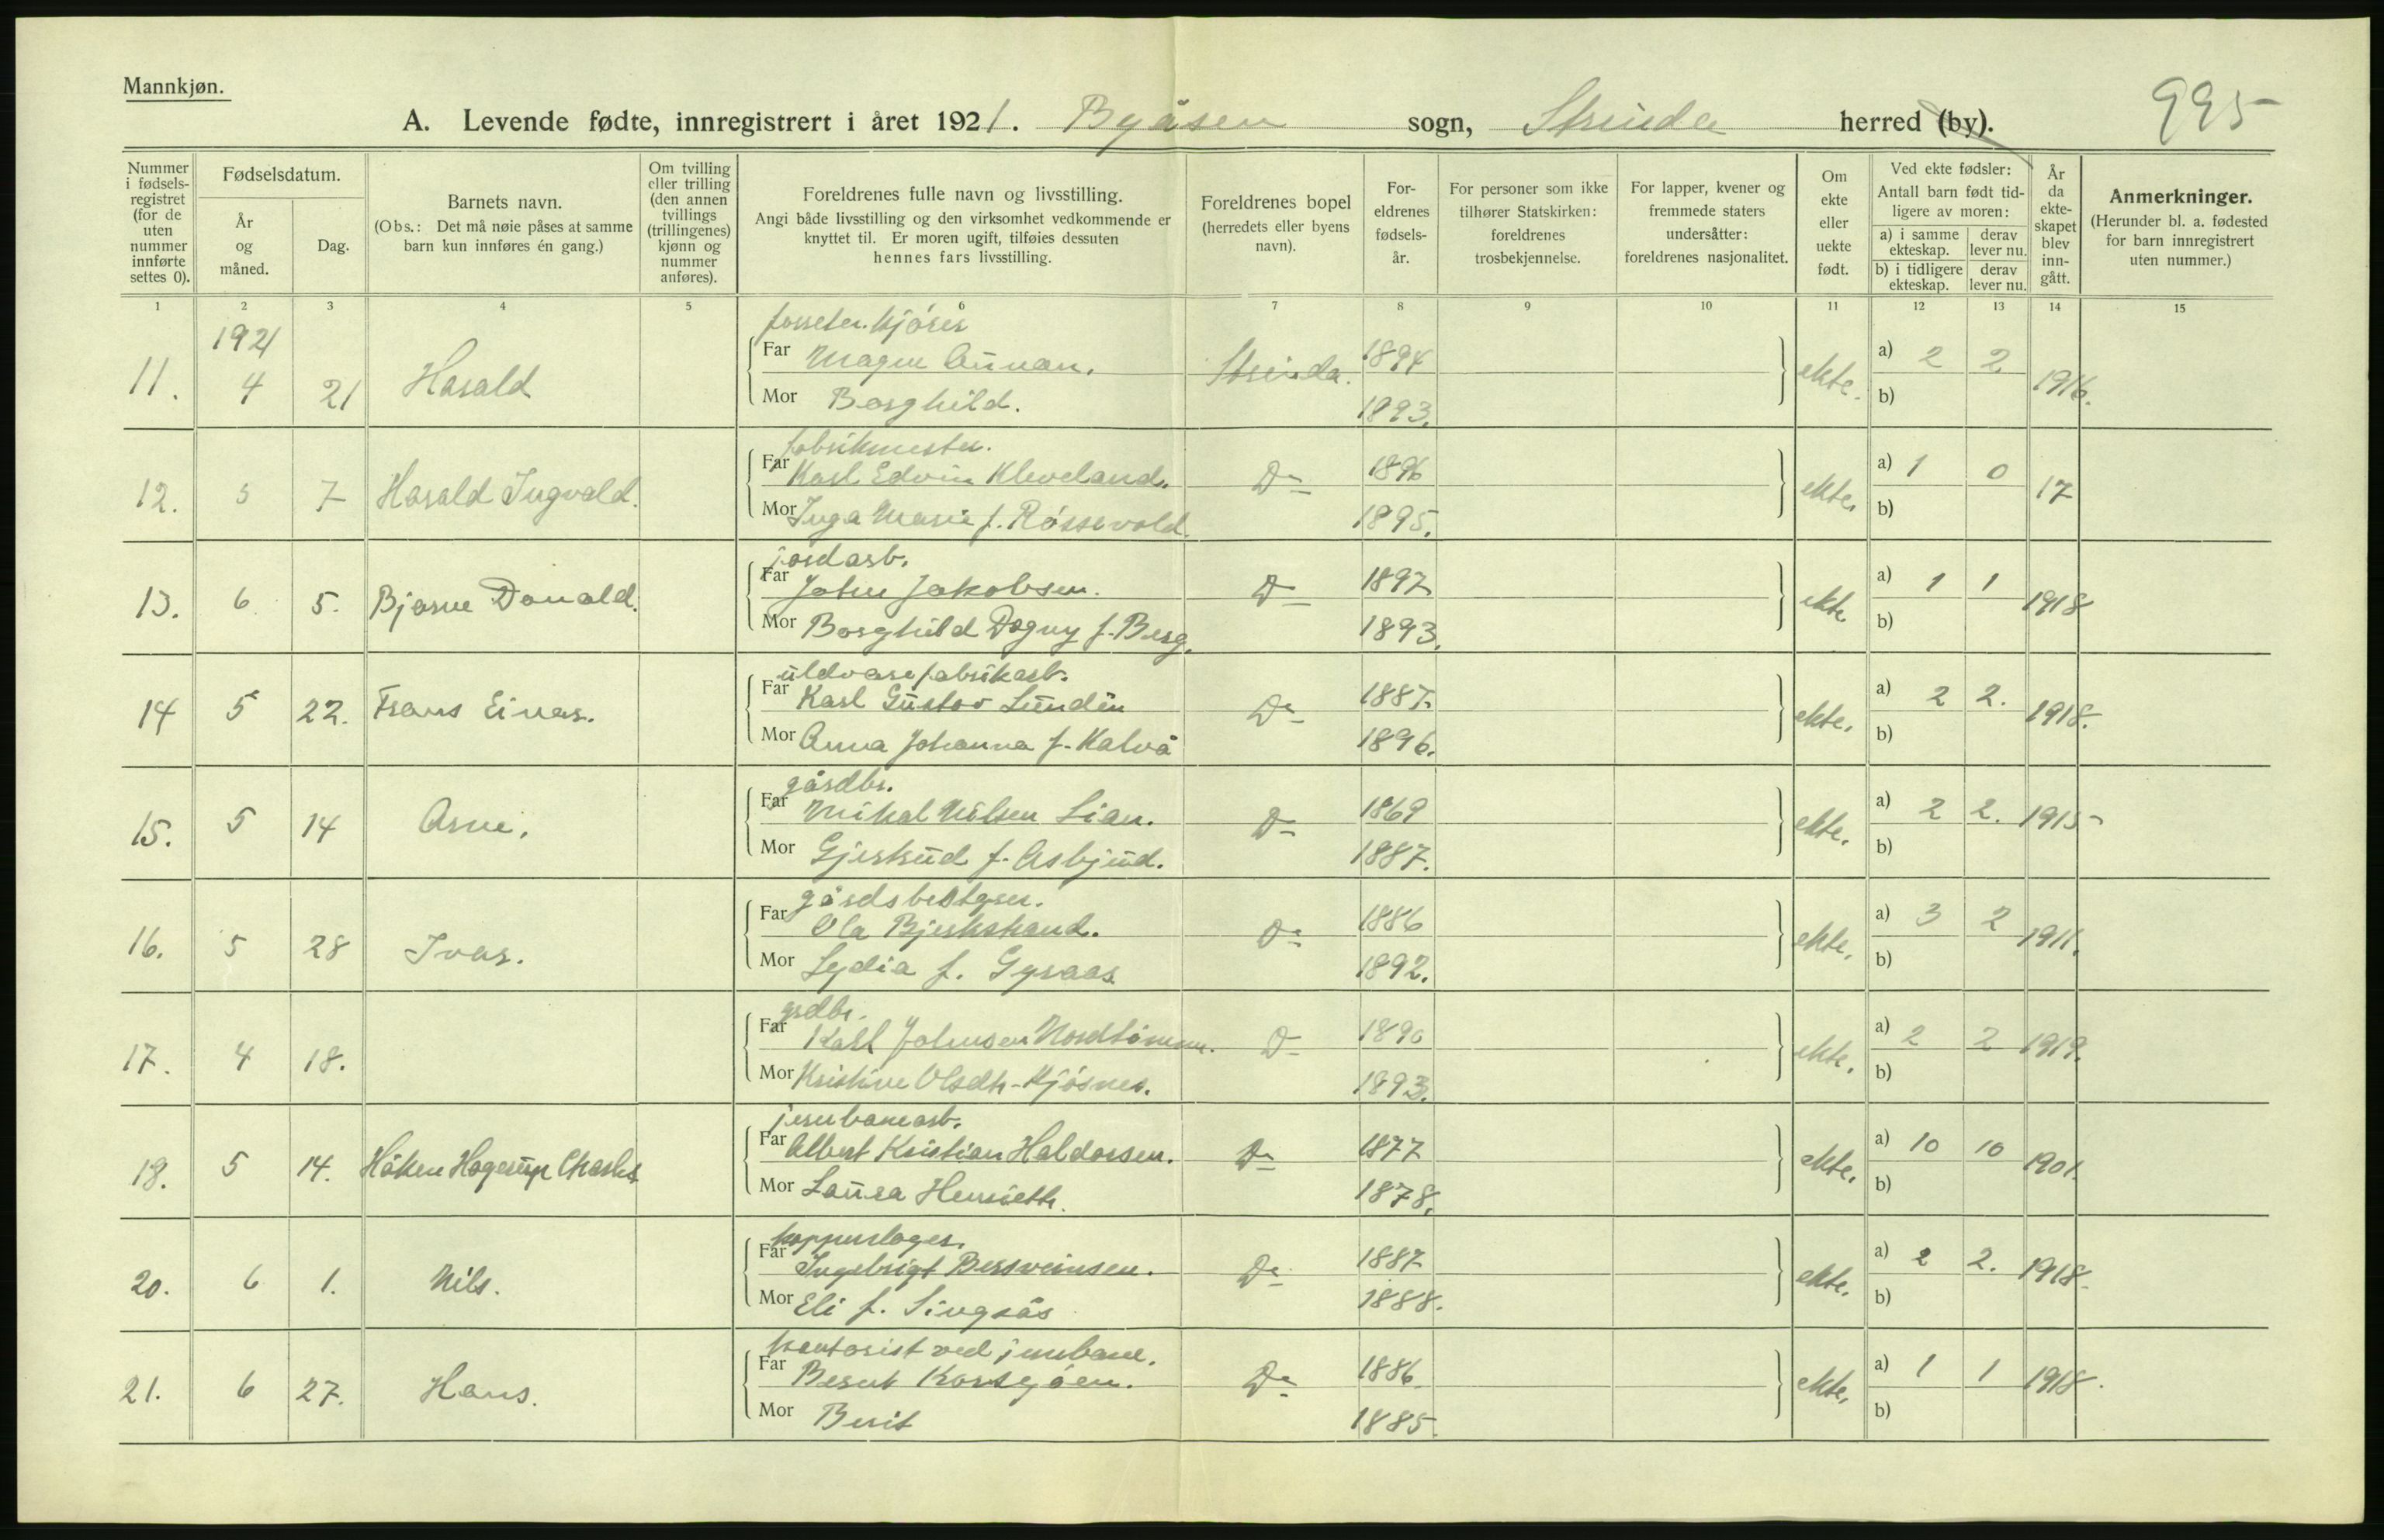 Mannkjøn.
995
A. Levende fødte, innregistrert i året 1921. Byåsen sogn, Strinda herred (by).
Nummer i fødsels-registret (for de uten nummer innførte settes 0).
Fødselsdatum.
År og måned.
Dag.
Barnets navn.
(Obs.: Det må nøie påses at samme barn kun innføres én gang.)
Om tvilling eller trilling (den annen tvillings (trillingenes) kjønn og nummer anføres).
Foreldrenes fulle navn og livsstilling.
Angi både livsstilling og den virksomhet vedkommende er knyttet til. Er moren ugift, tilføies dessuten hennes fars livsstilling.
Foreldrenes bopel (herredets eller byens navn).
For-eldrenes fødsels-år.
For personer som ikke tilhører Statskirken: foreldrenes trosbekjennelse.
For lapper, kvener og fremmede staters undersåtter: foreldrenes nasjonalitet.
Om ekte eller uekte født.
Ved ekte fødsler:
Antall barn født tid-ligere av moren:
a) i samme ekteskap.
derav lever nu.
b) i tidligere ekteskap.
derav lever nu.
År da ekte-skapet blev inn-gått.
Anmerkninger.
(Herunder bl. a. fødested for barn innregistrert uten nummer.)
1 2 3 4 5 6 7 8 9 10 11 12 13 14 15
1921
11. 4 21 Harald Far Magne Aunan. Strinda. 1894 ekte. a) 2 2 1916.
Mor Borghild. 1893. b)
fabrikmester.
12. 5 7 Harald Ingvald. Far Karl Edvin Kleveland. Do 1896 ekte. a) 1 0 17
Mor Inga Marie f. Røssevold. 1895. b)
jordarb.
13. 6 5. Bjarne Donald. Far John Jakobsen. Do 1897 ekte a) 1 1 1918
Mor Borghild Dagny f. Berg. 1893. b)
uldvarefabrikarb.
14 5 22. Frans Einar. Far Karl Gustav Lundin Do 1887. ekte. a) 2 2. 1918.
Mor Anna Johanna f. Kalvå 1896. b)
gårdbr.
15. 5 14 Arne. Far Mikal Nilsen Lian. Do 1869 ekte. a) 2 2. 1915
Mor Gjertrud f. Asbjud. 1887. b)
gårdsbestyrer.
16. 5 28 Ivar. Far Ola Bjerkstrand. Do 1886 ekte. a) 3 2 1911.
Mor Lydia f. Gyraas 1892. b)
grdbr.
17. 4 18. Far Karl Johnsen Nordtømme. Do 1890 ekte. a) 2 2 1919.
Mor Kristine Olsdtr. Kjøsnes. 1893. b)
jernbanearb.
18. 5 14. Håken Hagerup Charles Far Albert Kristian Haldorsen. Do 1877 ekte. a) 10 10 1901.
Mor Laura Henriette. 1878. b)
kopperslager.
20. 6 1. Nils. Far Ingebrigt Bersveinsen. Do 1887 ekte. a) 2 2. 1918.
Mor Eli f. Singsås 1888. b)
kontorist ved jernbane.
21. 6 27. Hans. Far Bernt Korsgøen. Do 1886 ekte. a) 1 1 1918.
Mor Berit 1885. b)